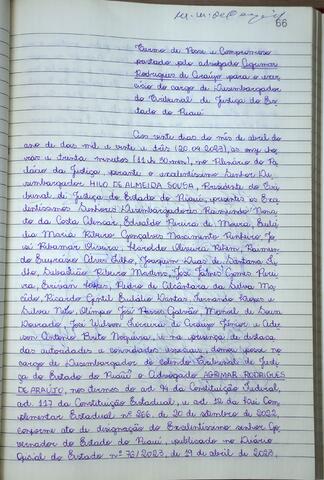 66
Termo de Posse e Compromisso
prestado pelo advogado Agrimar
Rodrigues de Araújo para o exer-
cício do cargo de Desembargador
do Tribunal de Justiça do Es-
tado do Piauí
Aos vinte dias do mês de abril do
ano de dois mil e vinte e três (20.04.2023), às onze ho-
ras e trinta minutos (11h 30min), no Plenário do Pa-
lácio da Justiça, perante o excelentíssimo Senhor De-
sembargador HILO DE ALMEIDA SOUSA, Presidente do Tri-
bunal de Justiça do Estado do Piauí, presentes os Exce-
lentíssimos Senhores Desembargadores Raimundo Nona-
to da Costa Alencar, Edvaldo Pereira de Moura, Eulá-
lia Maria Ribeiro Gonçalves Nascimento Pinheiro, Jo-
sé Ribamar Oliveira, Haroldo Oliveira Rehem, Raimun-
do Eufrásio Alves Filho, Joaquim Dias de Santana Fi-
lho, Sebastião Ribeiro Martins, José James Gomes Perei-
ra, Erivan Lopes, Pedro de Alcântara da Silva Ma-
cêdo, Ricardo Gentil Eulálio Dantas, Fernando Lopes e
Silva Neto, Olímpio José Passos Galvão, Manoel de Sousa
Dourado, José Wilson Ferreira de Araújo Júnior e Ade-
rson Antonio Brito Nogueira, e na presença de destaca-
das autoridades e convidados especiais, tomou posse no
cargo de Desembargador do Egrégio Tribunal de Justi-
ça do Estado do Piauí o Advogado AGRIMAR RODRIGUES
DE ARAÚJO, nos termos do art. 94 da Constituição Federal,
art. 117 da Constituição Estadual, e art. 12 da Lei Com-
plementar Estadual nº 266, de 20 de setembro de 2022,
conforme ato de designação do Excelentíssimo senhor Go-
vernador do Estado do Piauí, publicado no Diário
Oficial do Estado nº 76/2023, de 19 de abril de 2023,